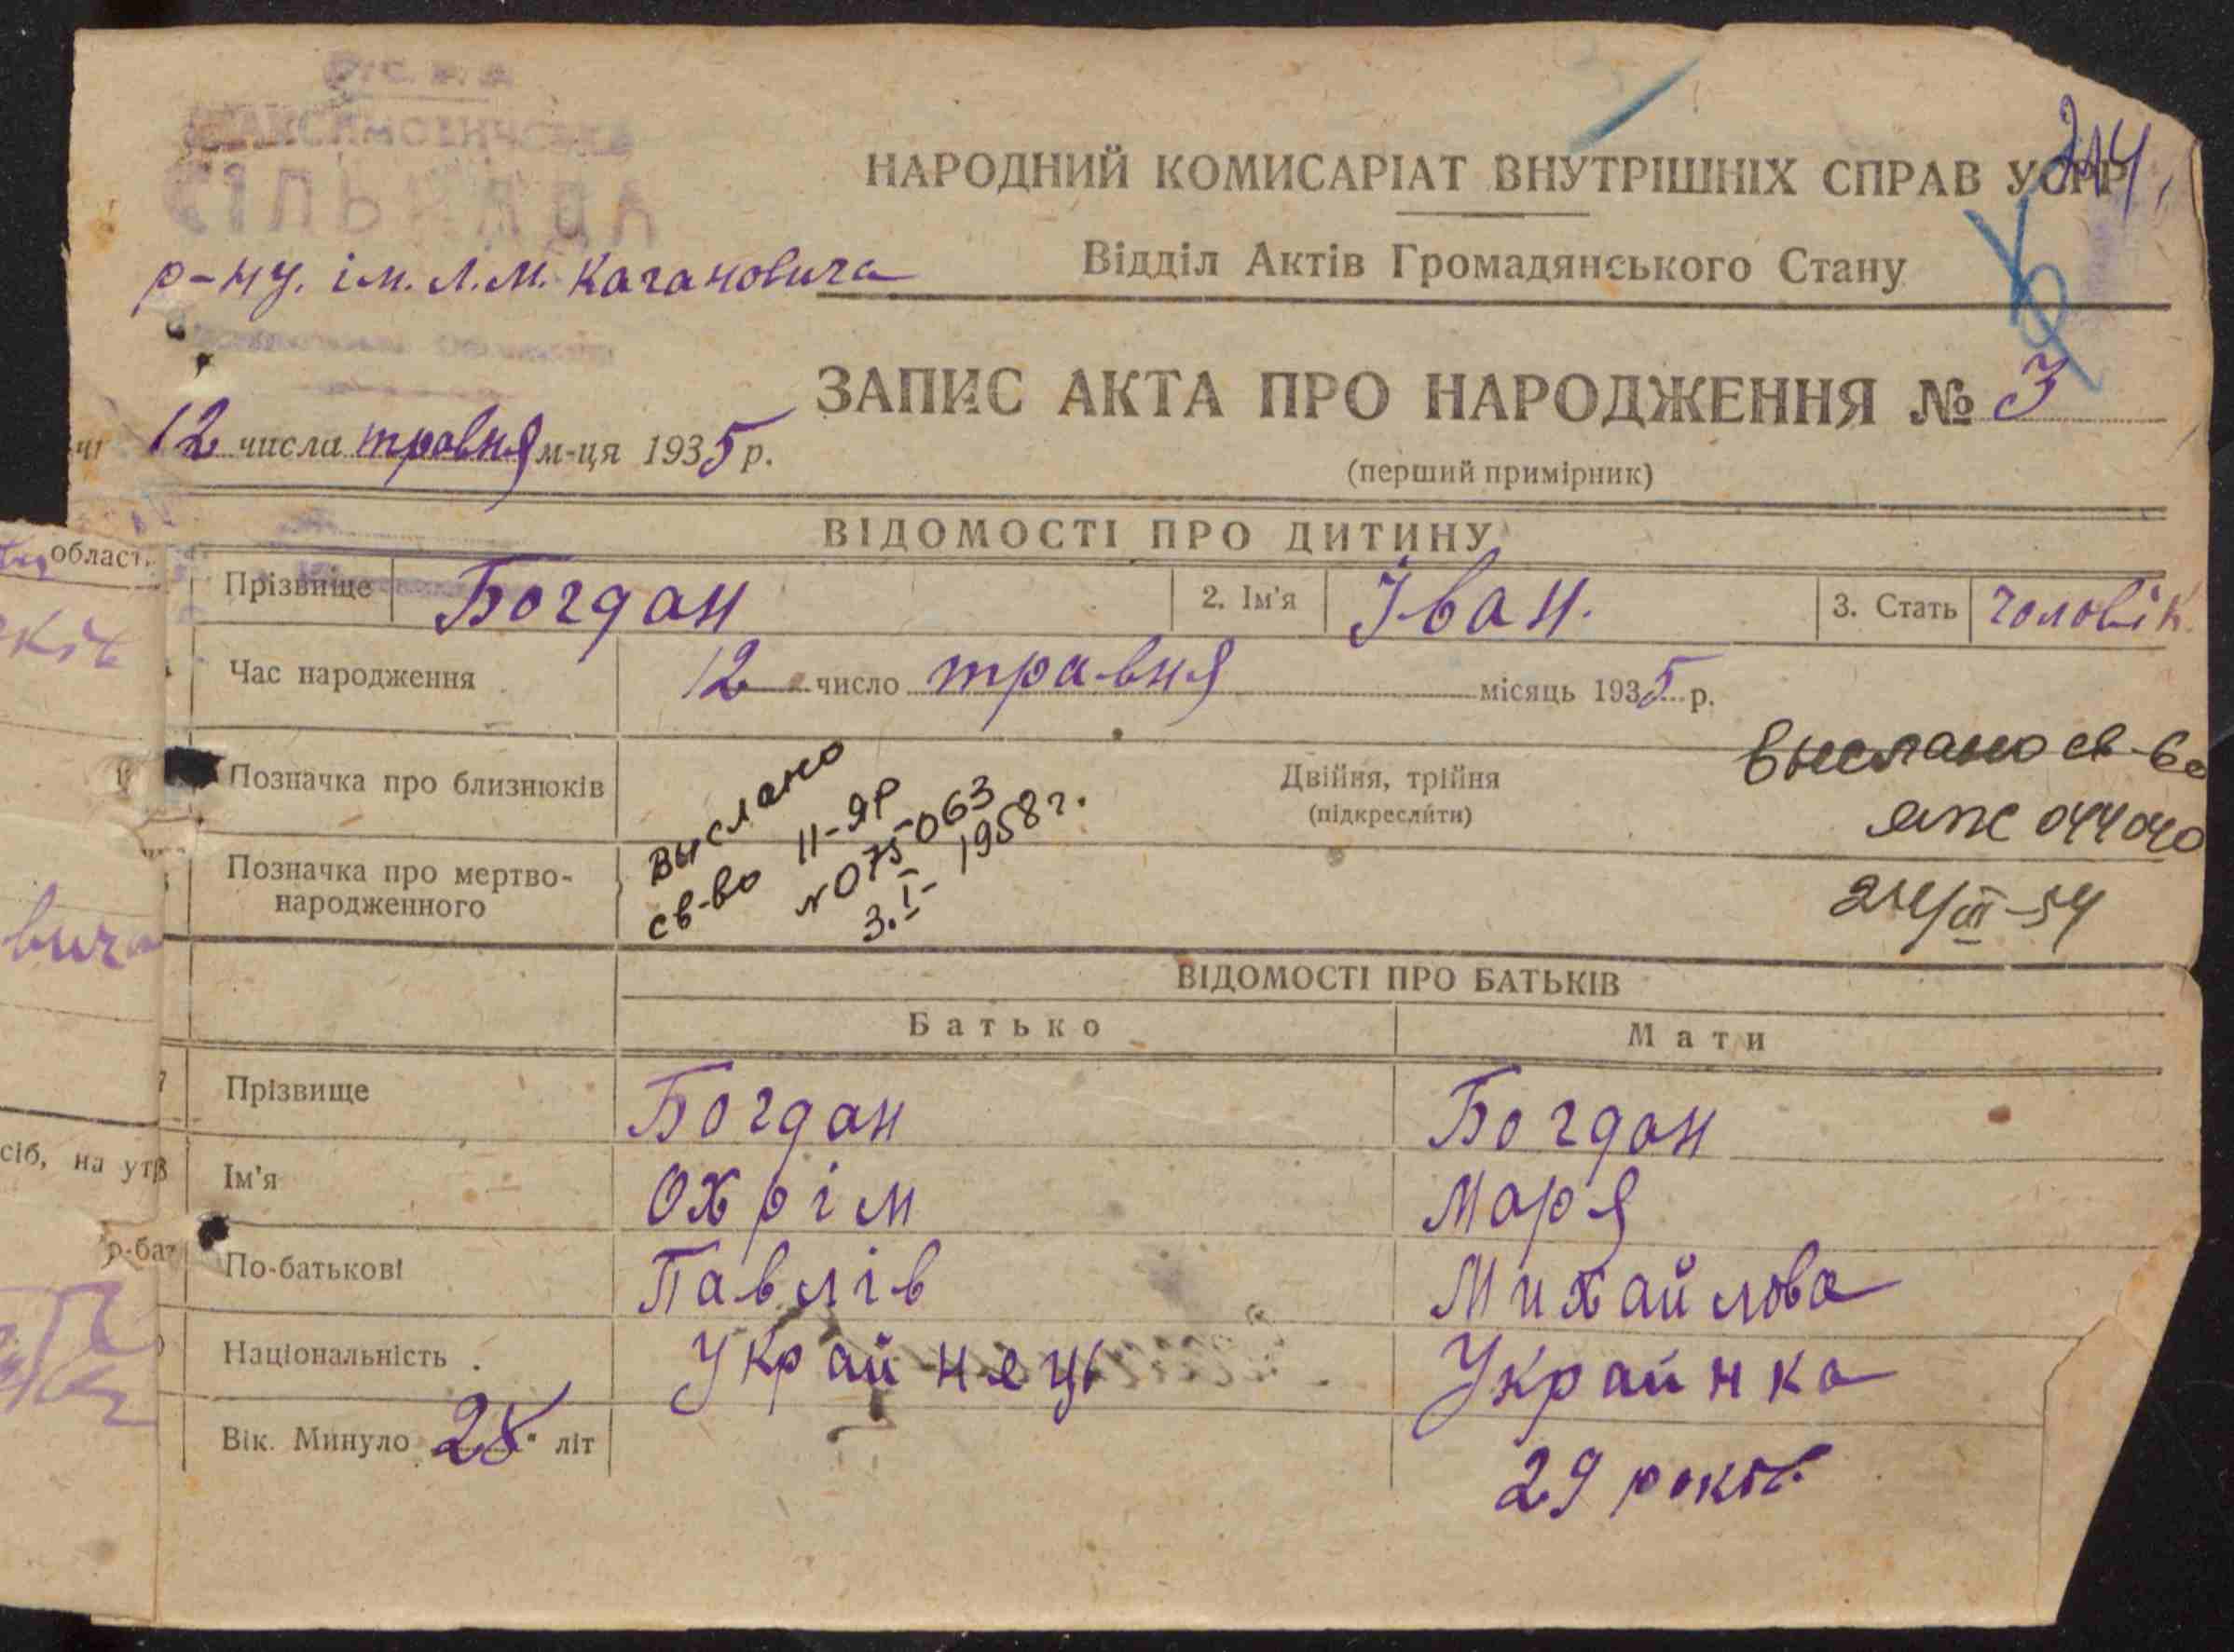 МАКСИМОВИЧСЬКА
СІЛЬРАДА
р-ну. ім. Л.М. Кагановича
214
НАРОДНИЙ КОМИСАРІАТ ВНУТРІШНІХ СПРАВ УСРР
Відділ Актів Громадянського Стану
ЗАПИС АКТА ПРО НАРОДЖЕННЯ № 3
12 числа травня м-ця 1935 р.
(перший примірник)
ВІДОМОСТІ ПРО ДИТИНУ
Прізвище Богдан 2. Ім'я Іван. 3. Стать чоловік.
Час народження 12 число травня місяць 1935 р.
Позначка про близнюків Двійня, трійня
(підкреслити)
Выслано
св-во II-ЯР
N 075063
3.I-1958 г.
Выслано св-во
ЯПЖ 044040
24/III-54
Позначка про мертво-
народженного
ВІДОМОСТІ ПРО БАТЬКІВ
Батько Мати
Прізвище Богдан Богдан
Ім'я Охрім Маря
По-батькові Павлів Михайлова
Національність Украйнець Украйнка
Вік. Минуло 28 літ 29 років.
област.
вича
сіб, на утр
р-бат